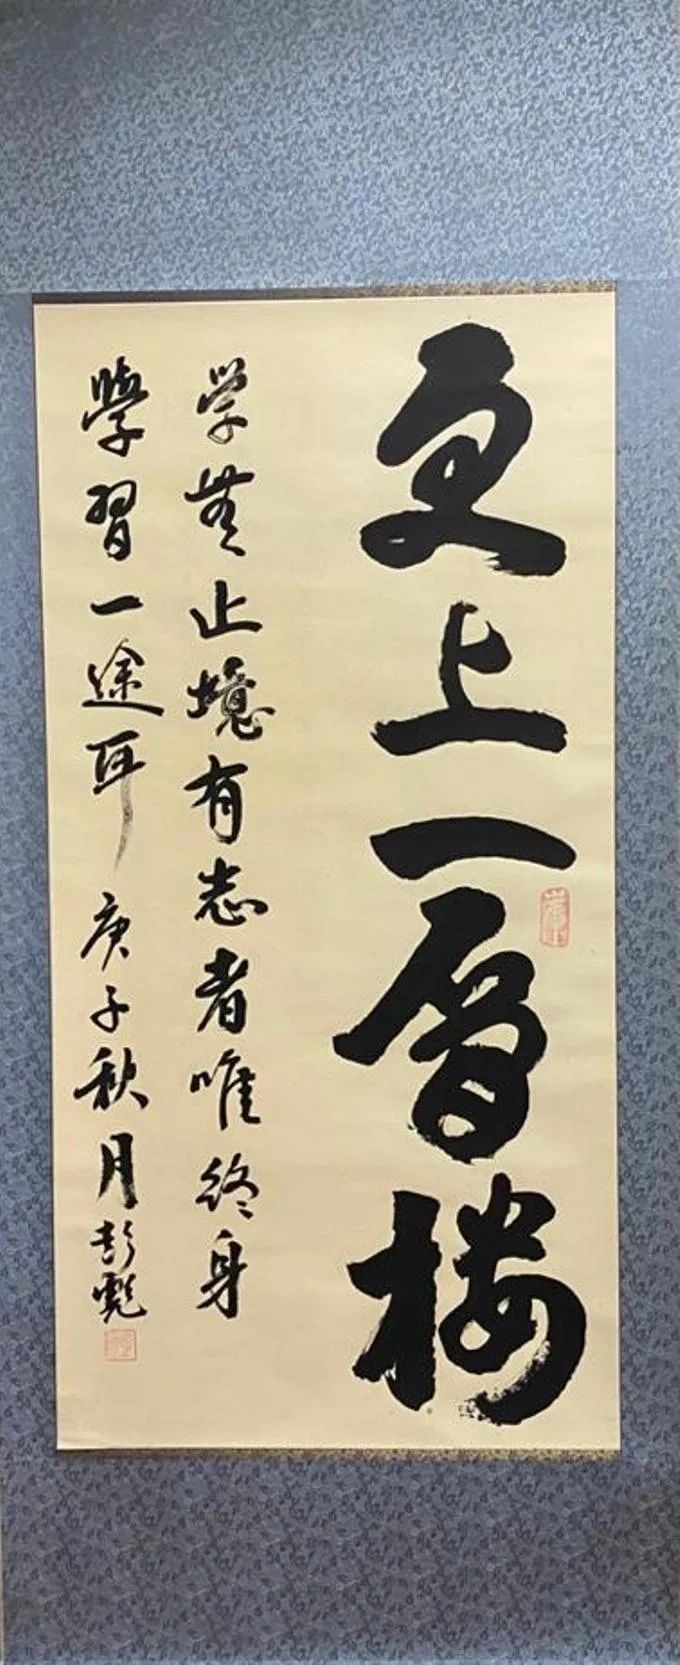 更上一層楼
学無止境有志者唯終身
學習一途耳 庚子秋月彭彪